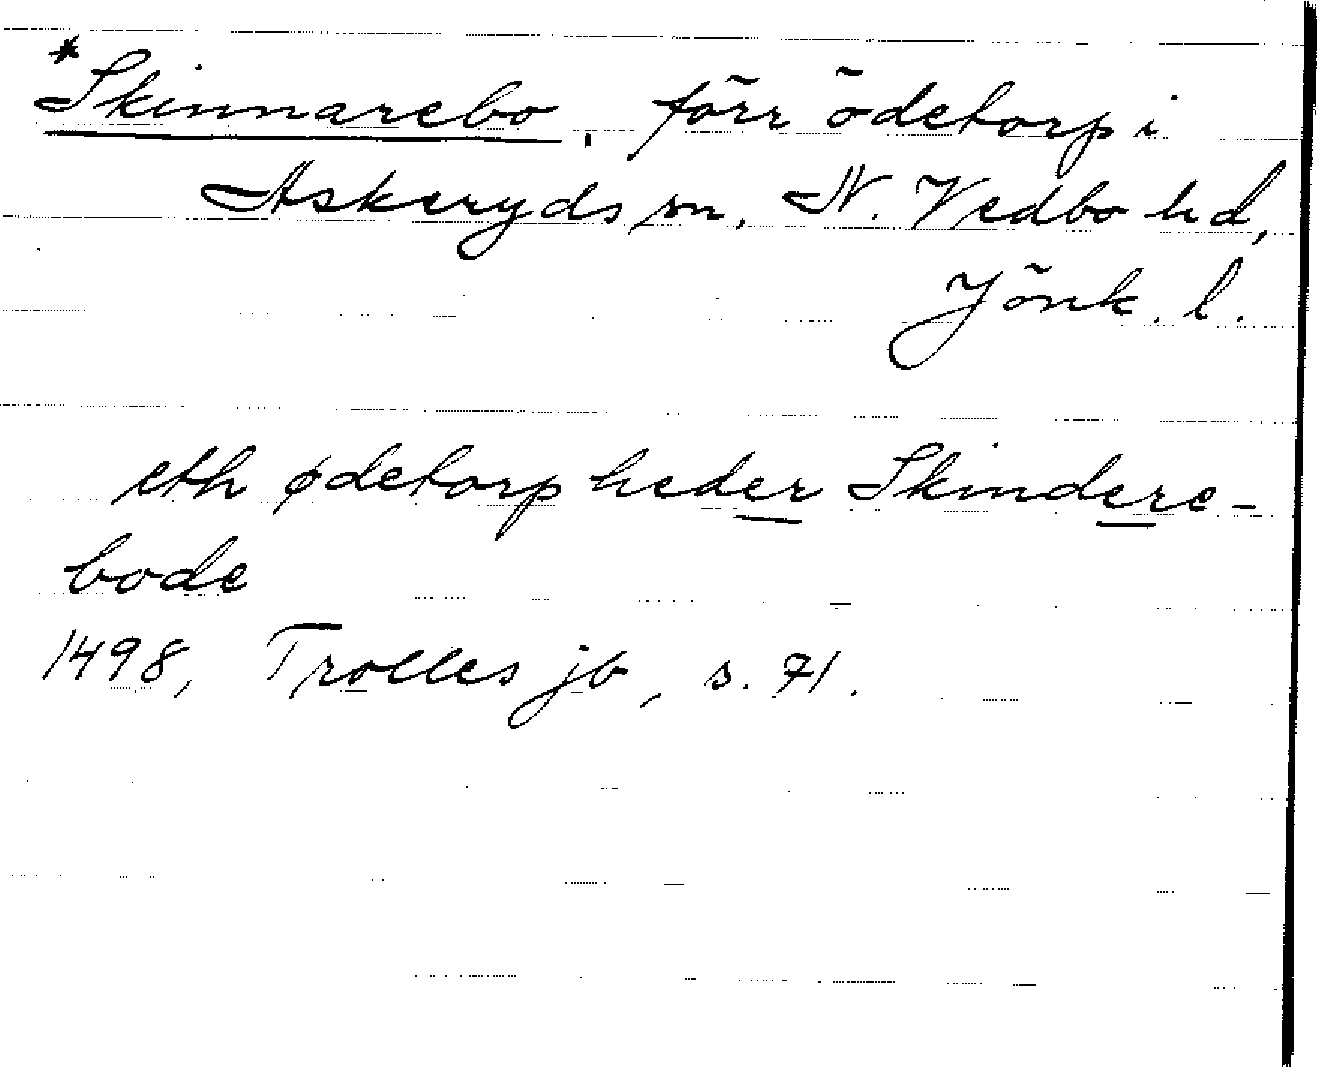 *Skinnarebo, förr ödetorp i
Askeryds sn, N. Vedbo hd,
Jönk. l.
eth ødetorp heder Skindere-
bode
1498, Trolles jb, s. 71.